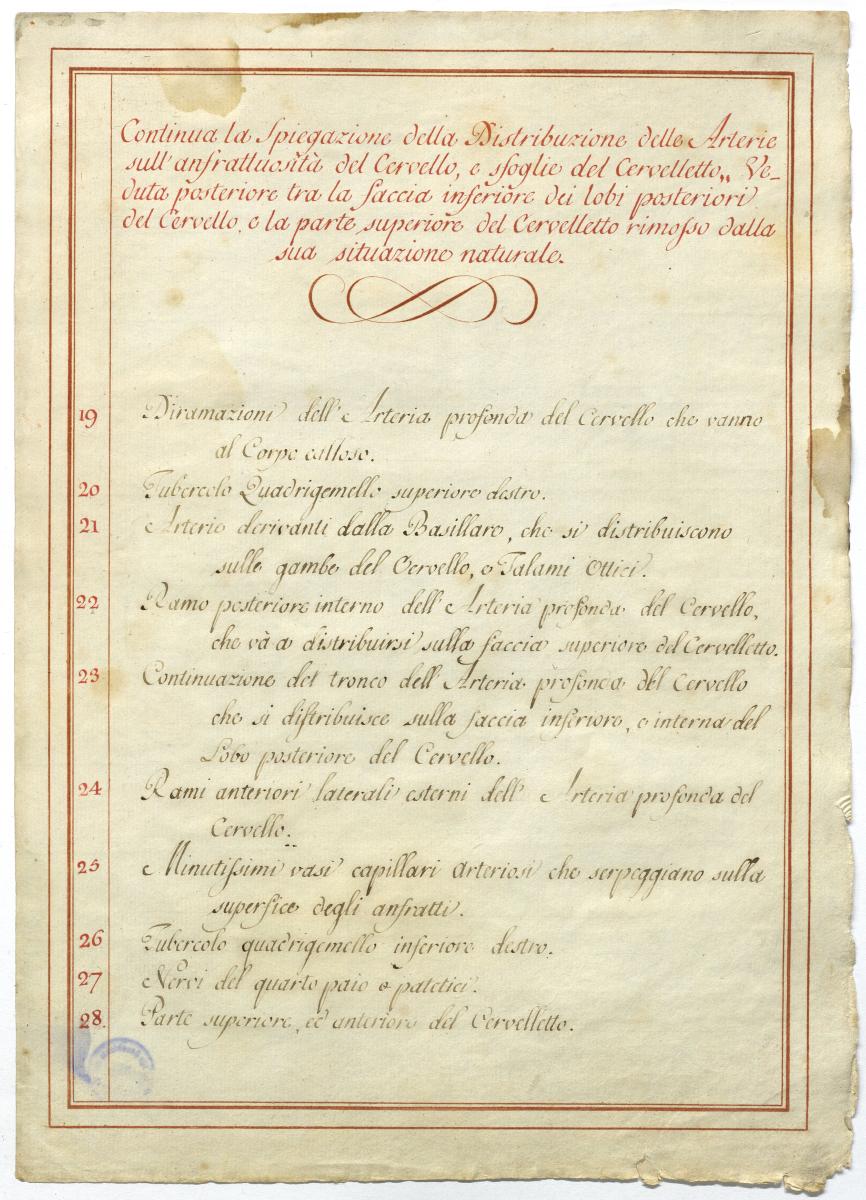 Continua la Spiegazione della Distribuzione delle Arterie
sull'anfrattuosità del Cervello, e sfoglie del Cervelletto,, Ve-
duta posteriore tra la faccia inferiore dei lobi posteriori
del Cervello, e la parte superiore del Cervelletto rimosso dalla
sua situazione naturale.
19 Diramazioni dell'Arteria profonda del Cervello che vanno
al Corpo calloso.
20 Tubercolo Quadrigemello superiore destro.
21 Arterie derivanti dalla Basillare, che si distribuiscono
sulle gambe del Cervello, e Talami Ottici.
22 Ramo posteriore interno dell'Arteria profonda del Cervello,
che và a distribuirsi sulla faccia superiore del Cervelletto.
23 Continuazione del tronco dell'Arteria profonda del Cervello
che si distribuisce sulla faccia inferiore, e interna del
Lobo posteriore del Cervello.
24 Rami anteriori laterali esterni dell'Arteria profonda del
Cervello.
25 Minutissimi vasi capillari arteriosi che serpeggiano sulla
superfice degli anfratti.
26 Tubercolo quadrigemello inferiore destro.
27 Nervi del quarto paio o patetici.
28. Parte superiore, ed anteriore del Cervelletto.